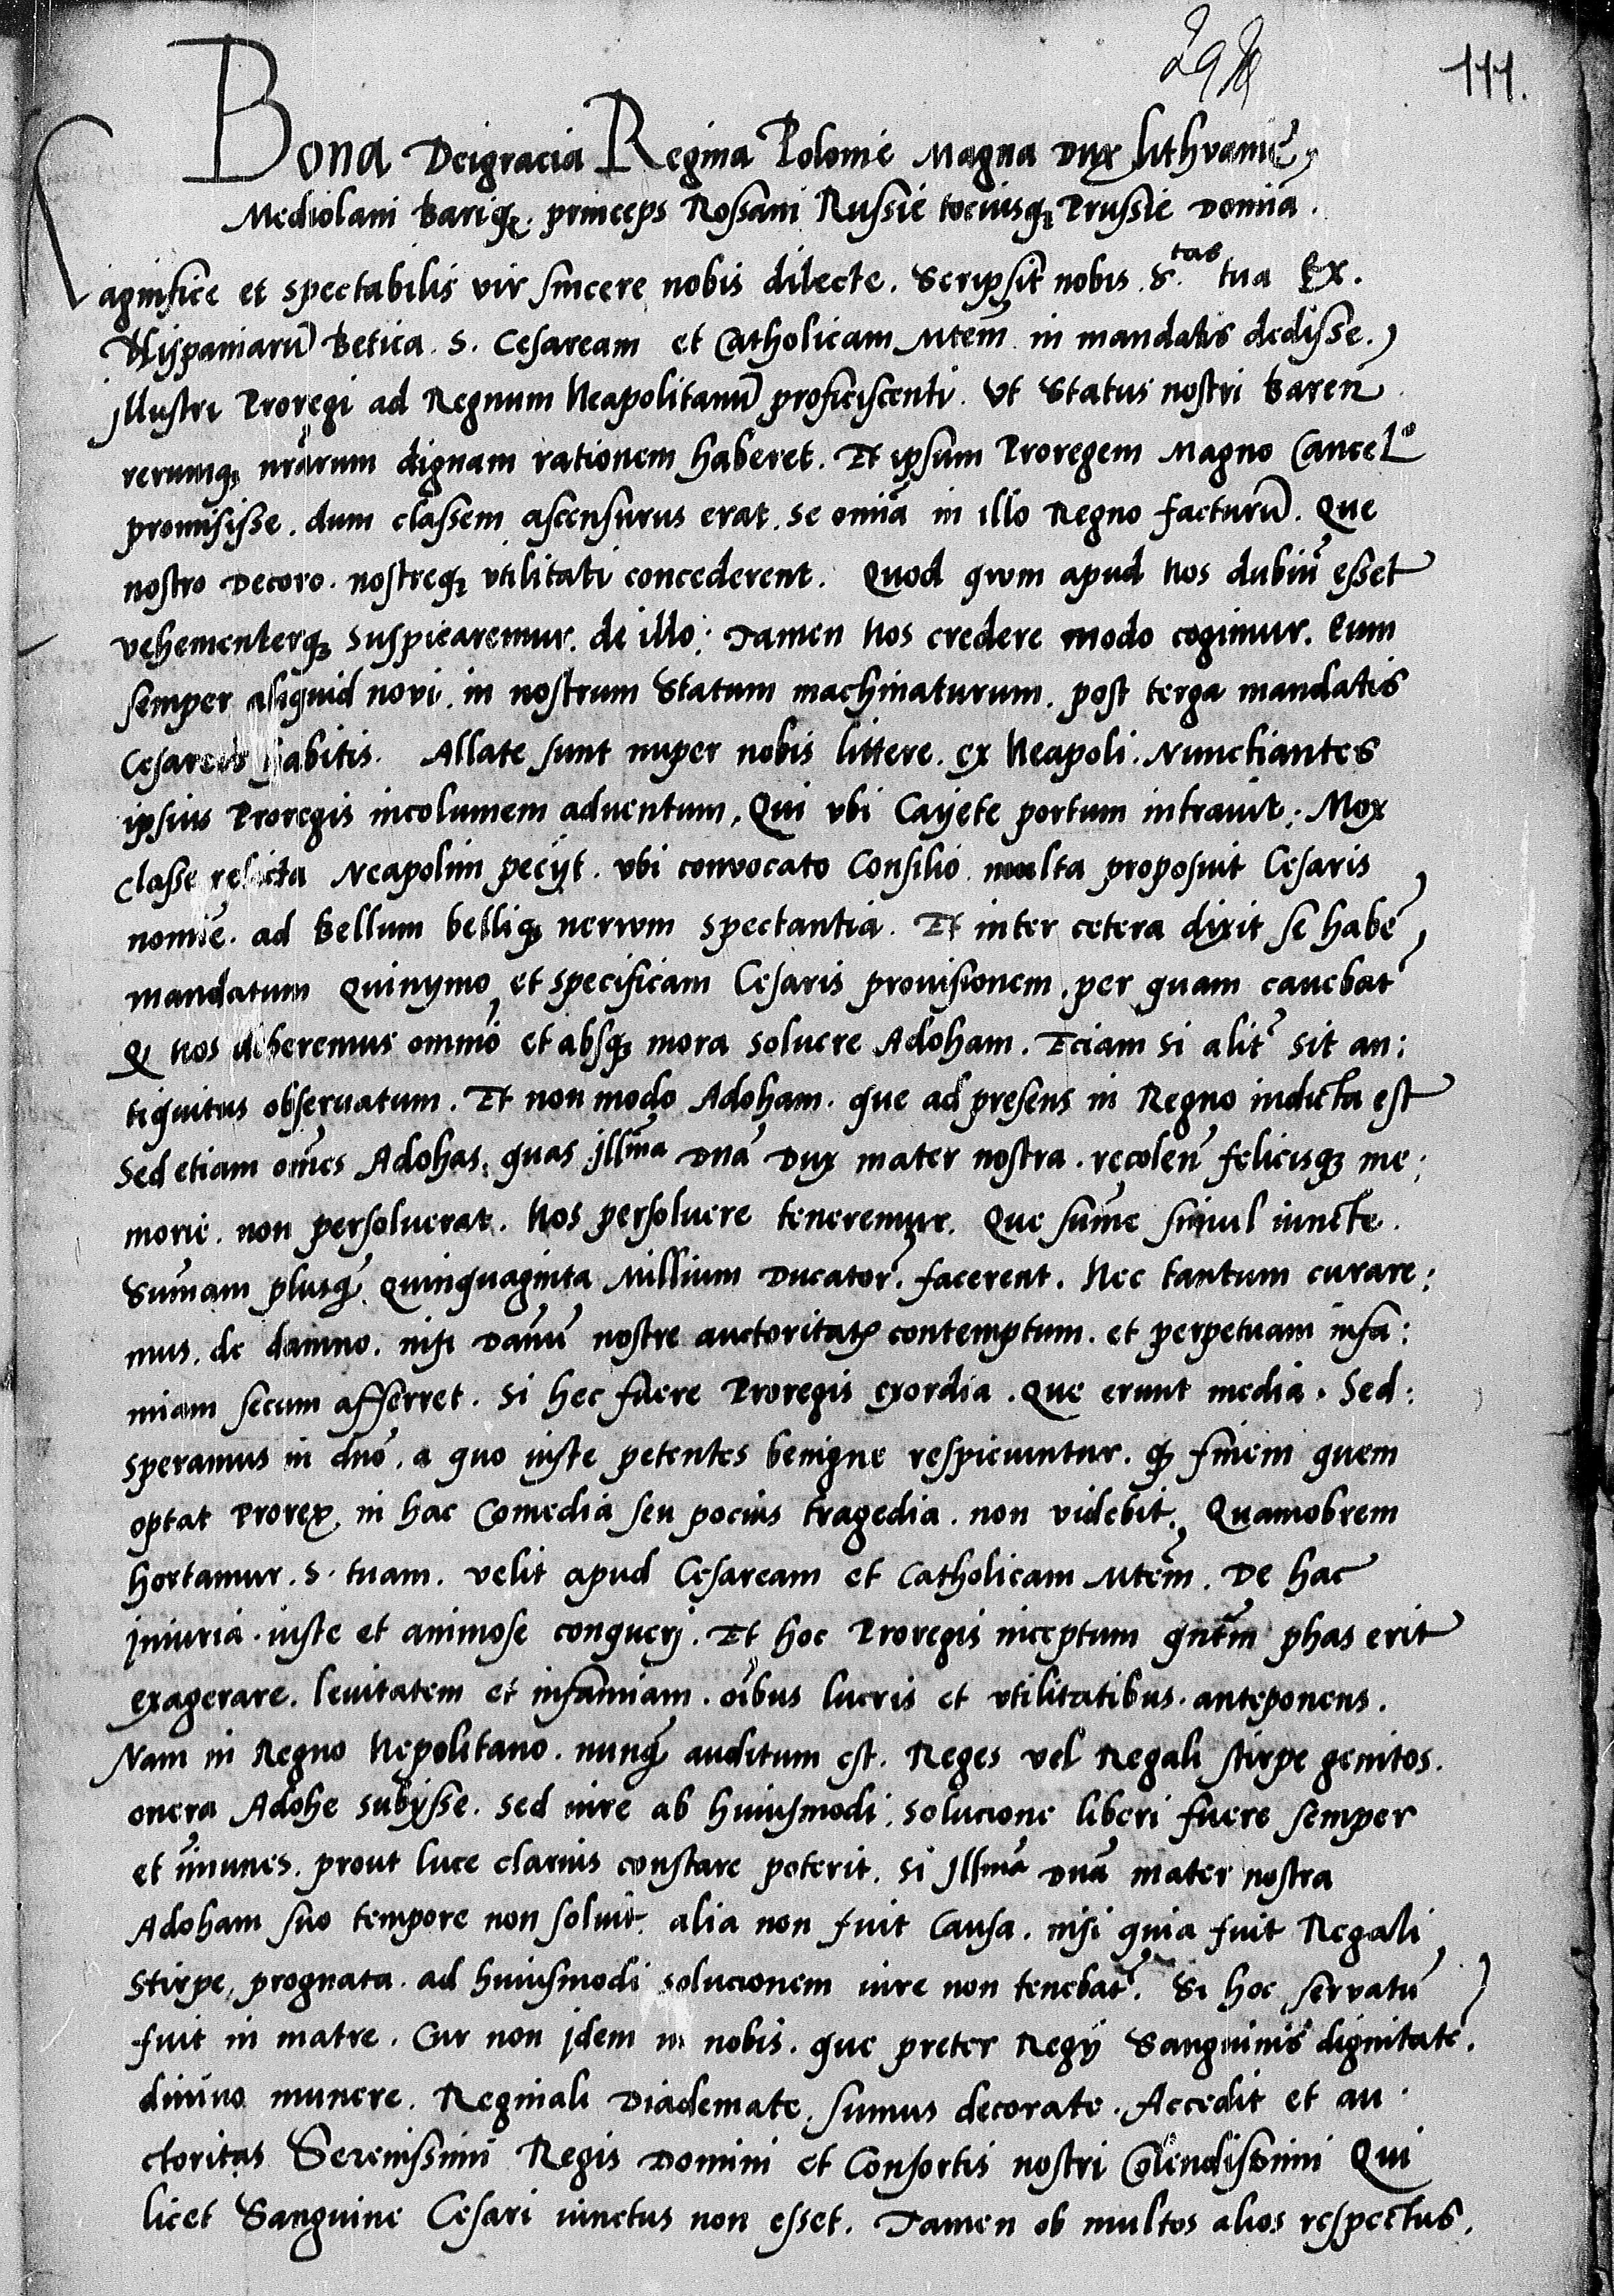 111.
Bona Deigracia Regina Polonie Magna Dux lithvanie,
Mediolani Bariq3. princeps Rossani Russie tociusq3 Prussie Domīa.
Magnifice et spectabilis vir sincere nobis dilecte. Scripsit nobis S.tas tua Ex.
Hispaniarū Betica. S. Cesaream et Catholicam Mtem̄ in mandatis dedisse.
jllustri Proregi ad Regnum Neapolitanū proficiscenti. Ut Status nostri Baren̄
rerumq3 nrārum dignam rationem haberet. Et ipsum Proregem Magno Cancelo
promisisse. dum classem ascensurus erat. se omīa in illo Regno facturū. Que
nostro Decoro. nostreq3 vtilitati concederent. Quod qvom apud Nos dubiū esset
vehementerq3 suspicaremur. de illo: Tamen Nos credere modo cogimur. Eum
semper aliquid novi. in nostrum Statum machinaturum. post terga mandatis
Cesareis habitis. Allate sunt nuper nobis littere. ex Neapoli. Nunctiantes
ipsius Proregis incolumem aduentum, Qui vbi Cayete portum intrauit; Mox
classe relicta Neapolim pecijt. vbi convocato Consilio multa proposuit Cesaris
nomīe. ad Bellum belliq3 nervvm spectantia. Et inter cetera dixit se habē
mandatum Quinymo et specificam Cesaris prouisionem, per quam cauebat̄
Q3 Nos deberemus omnīo et absq3 mora soluere Adoham. Eciam si alit̄ sit an:
tiquitus obseruatum. Et non modo Adoham. que ad presens in Regno indicta est
Sed etiam om̄es Adohas, quas jllm̄a Dnā Dux mater nostra. recolen̄ felicisq3 me:
morie. non persoluerat. Nos persoluere teneremur. Que sum̄e simul iuncte.
Sum̄am plusq̄3 Quinquaginta Millium Ducator̄. facerent. Nec tantum curare:
mus. de damno. nisi Danū nostre auctoritatis contemptum. et perpetuam infa:
miam secum afferret. Si hec fuere Proregis exordia. Que erunt media. Sed:
speramus in dnō. a quo iuste petentes benigne respiciuntur. q3 finem quem
optat Prorex in hac Comedia seu pocius tragedia. non videbit. Quamobrem
hortamur. S. tuam. velit apud Cesaream et Catholicam Mtem̄. De hac
jniuria. iuste et animose conquerj. Et hoc Proregis inceptum qntm̄ phas erit
exagerare. leuitatem et infamiam. oībus lucris et vtilitatibus. anteponens.
Nam in Regno Nepolitano. nunq̄3 auditum est. Reges vel Regali stirpe genitos.
onera Adohe subijsse. sed iure ab huiusmodi. solucione liberi fuere semper
et īmunes. prout luce clarius constare poterit. Si jllmā Dnā mater nostra
Adoham suo tempore non soluit. alia non fuit Causa. nisi quia fuit Regali
Stirpe, prognata. ad huiusmodi solucionem iure non tenebat̄. Si hoc servatū
fuit in matre. Cur non jdem in nobis. que preter Regij Sanguinis dignitatē.
diuino munere. Reginali Diademate, sumus decorate. Accedit et au:
ctoritas Serenissimi Regis Domini et Consortis nostri Colendissimi Qui
licet Sanguine Cesari iunctus non esset. Tamen ob multos alios respectus.